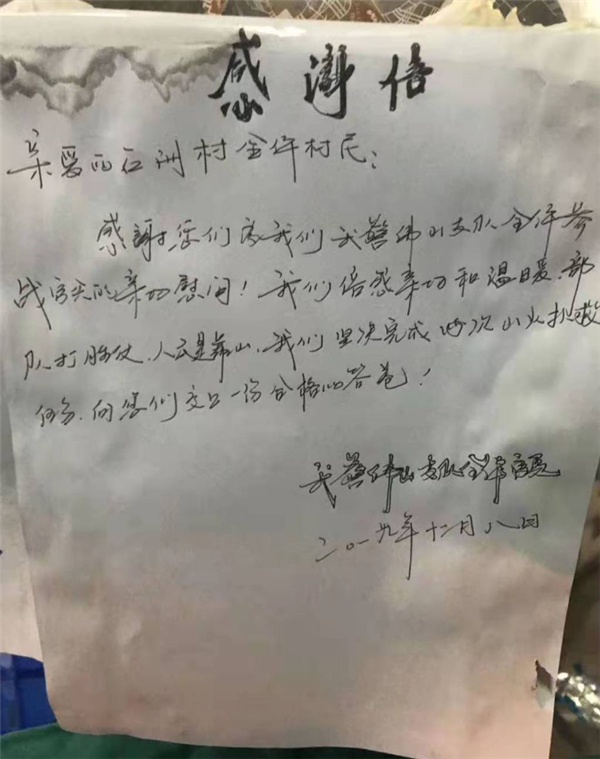 感谢信
亲爱的石洲村全体村民:
感謝您们家我们武警佛山支队全体参
战官兵的亲切慰问！我们倍感亲切和温暖.部
队打胜仗.人民是靠山.我们坚决完成此次山火扑救
任务.向您们交上一份合格的答卷！
武警佛山支队全体官兵
二〇一九年十二月八日